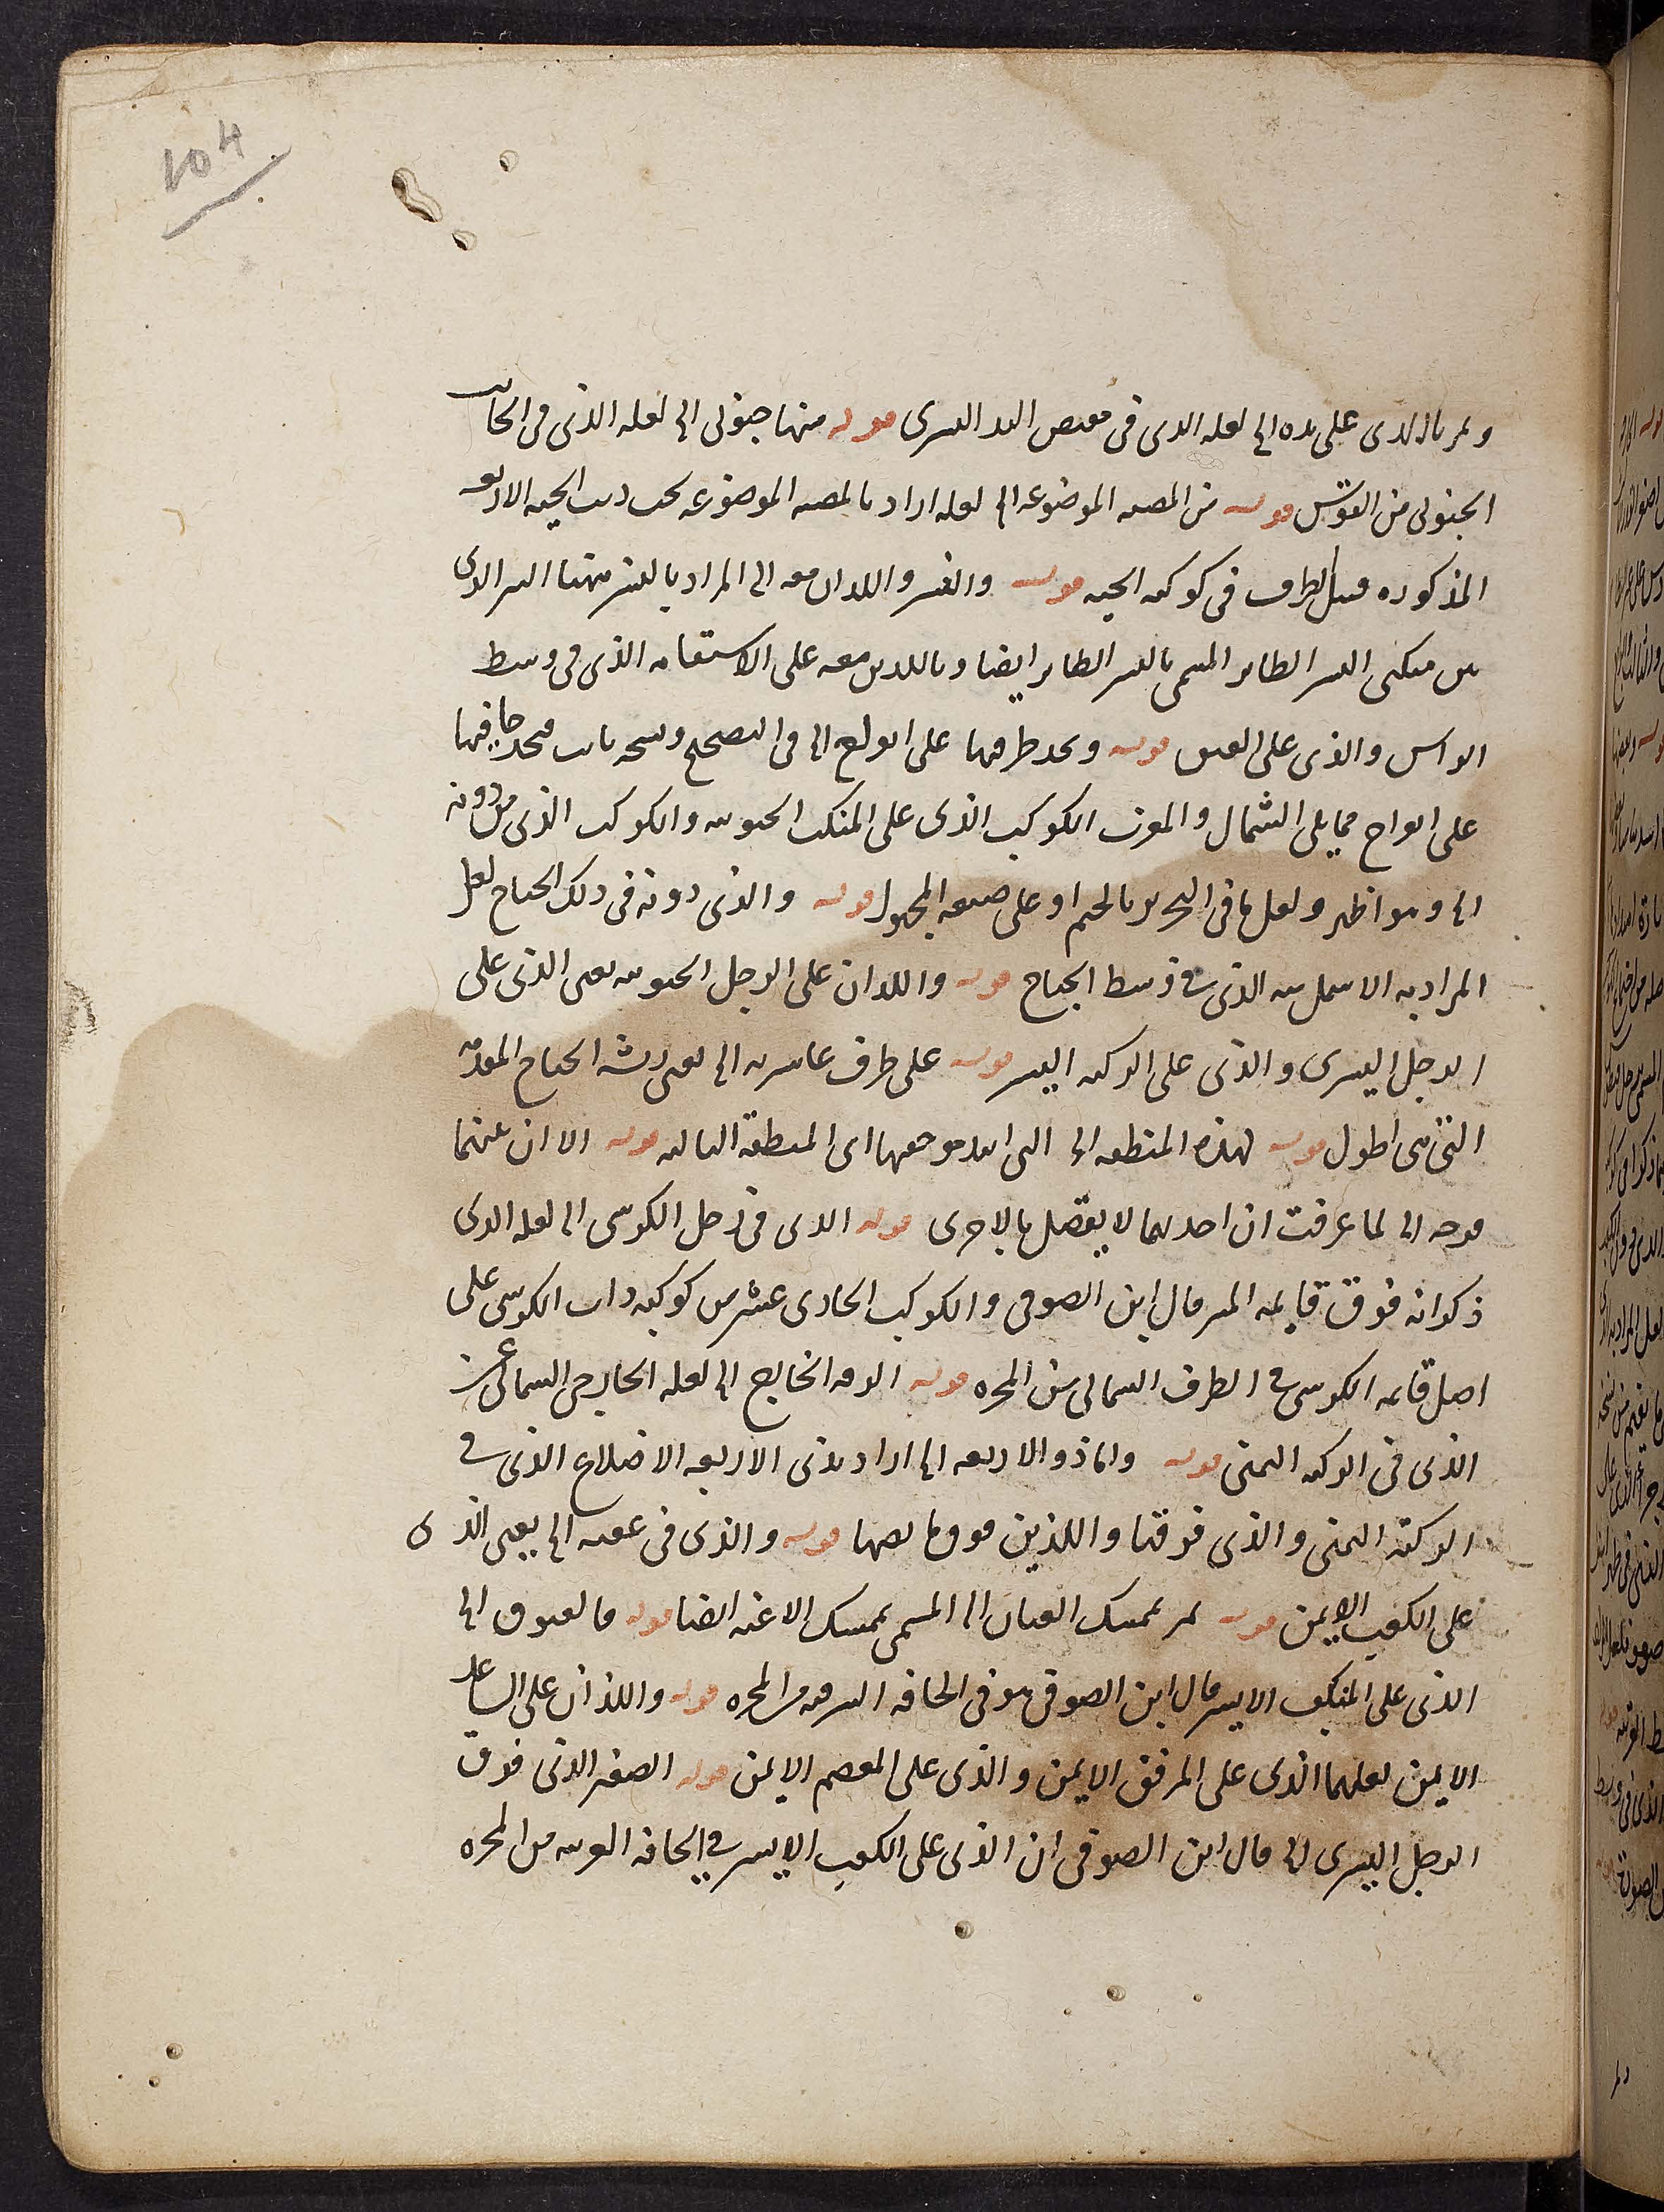 104
ويمر بالذى على يده الى لعله الذى فى مقبض اليد اليسرى قوله منها جنوبى الى لعله الذى فى الجانب
الجنوبى من القوس قوله من المضيه الموضوعه الى لعله اراد بالمضيه الموضوعه تحت ذنب الحيه الاربعه
المذكوره قبيل الطرف فى كوكبه الحيه قوله والنسر واللذان معه الى المراد بالنسر ههنا النير الذى
بين منكبى النسر الطاير المسمى بالنسر الطاير ايضا وباللذين معه على الاستقامه الذى فى وسط
الراس والذى على العنق قوله ويحد طرفها على الى فى التصحيح ونسخه ثابت فيحد حافيها
على انواج مما يلى الشمال والمغرب الكوكب الذى على المنكب الجنوبيه والكوكب الذى من دونه
الى وهو اظهر ولعل ما فى التحرير بالجيم او على صيغه المجهول قوله والذى دونه فى ذلك الجناح لعل
المراد به الاميل منه الذى فى وسط الجناح قوله واللذان على الرجل الجنوبيه يعنى الذى على
الرجل اليسرى والذى على الركبه اليسر قوله على طرف الى يعنى ريشه الجناح المقدمه
التى هى اطول قوله لهذه المنطقه الى التى اى المنطقة الماليه قوله الا ان عنهما
فرجه الى لما عرفت ان احديهما لا يتصل بالاخرى قوله الذى فى رجل الكرسى الى لعله الذى
ذكر انه فوق قايمه المسر قال ابن الصوفى والكوكب الحادى عشر من كوكبه ذات الكرسى على
اصل قايمه الكرسى فى الطرف الشمالى من المجره قوله الدقه الخارج الى لعله الخارجى الشمالى عن
الذى فى الركبه اليمنى قوله واما ذو الاربعه الى اراد بذى الاربعه الاضلاع الذى فى
الركبة اليمنى والذى فوقها واللذين فوقهما قوله والذى فى عقبه الى يعنى الذى
على الكعب الايمن قوله يمر بممسك العنان الى المسمى بممسك الاعنه ايضا قوله فالعيوق الى
الذى على المنكب الايسر قال ابن الصوفى هو فى الحافه الشرقيه من المجره قوله واللذان على الساعد
الايمن لعلهما الذى على المرفق الايمن والذى على المعصم الايمن قوله الصغير الذى فوق
الرجل اليسرى الى قال ابن الصوفى ان الذى على الكعب الايسر فى الحافه الغربيه من المجره